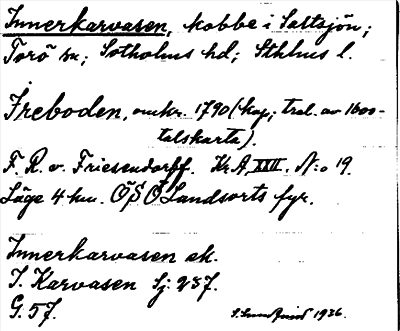 Innerkarvasen, kobbe i Saltsjön;
Torö sn; Sotholms hd; Sthlms l.
Jreboden, omkr. 1790 (kop; trol. av 1600-
talskarta).
F. R. v. Friesendorff. Kr. A. XXII. N:o 19.
Läge 4 km. ÖSÖ Landsorts fyr.
Innerkarvasen ek.
I. Karvasen Sj: 237.
G. 57.
1936.